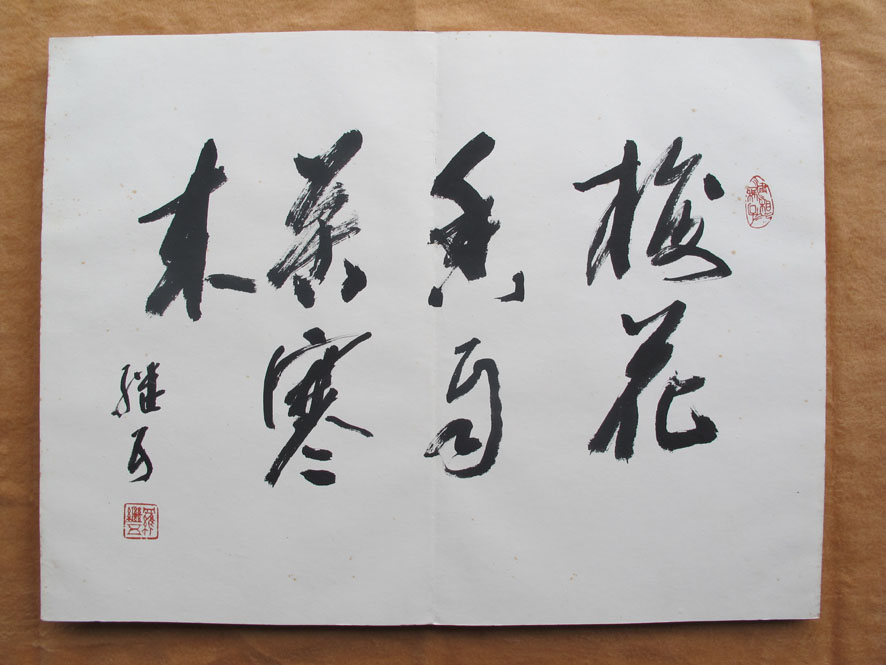 梅花
香自
苦寒
来
继五